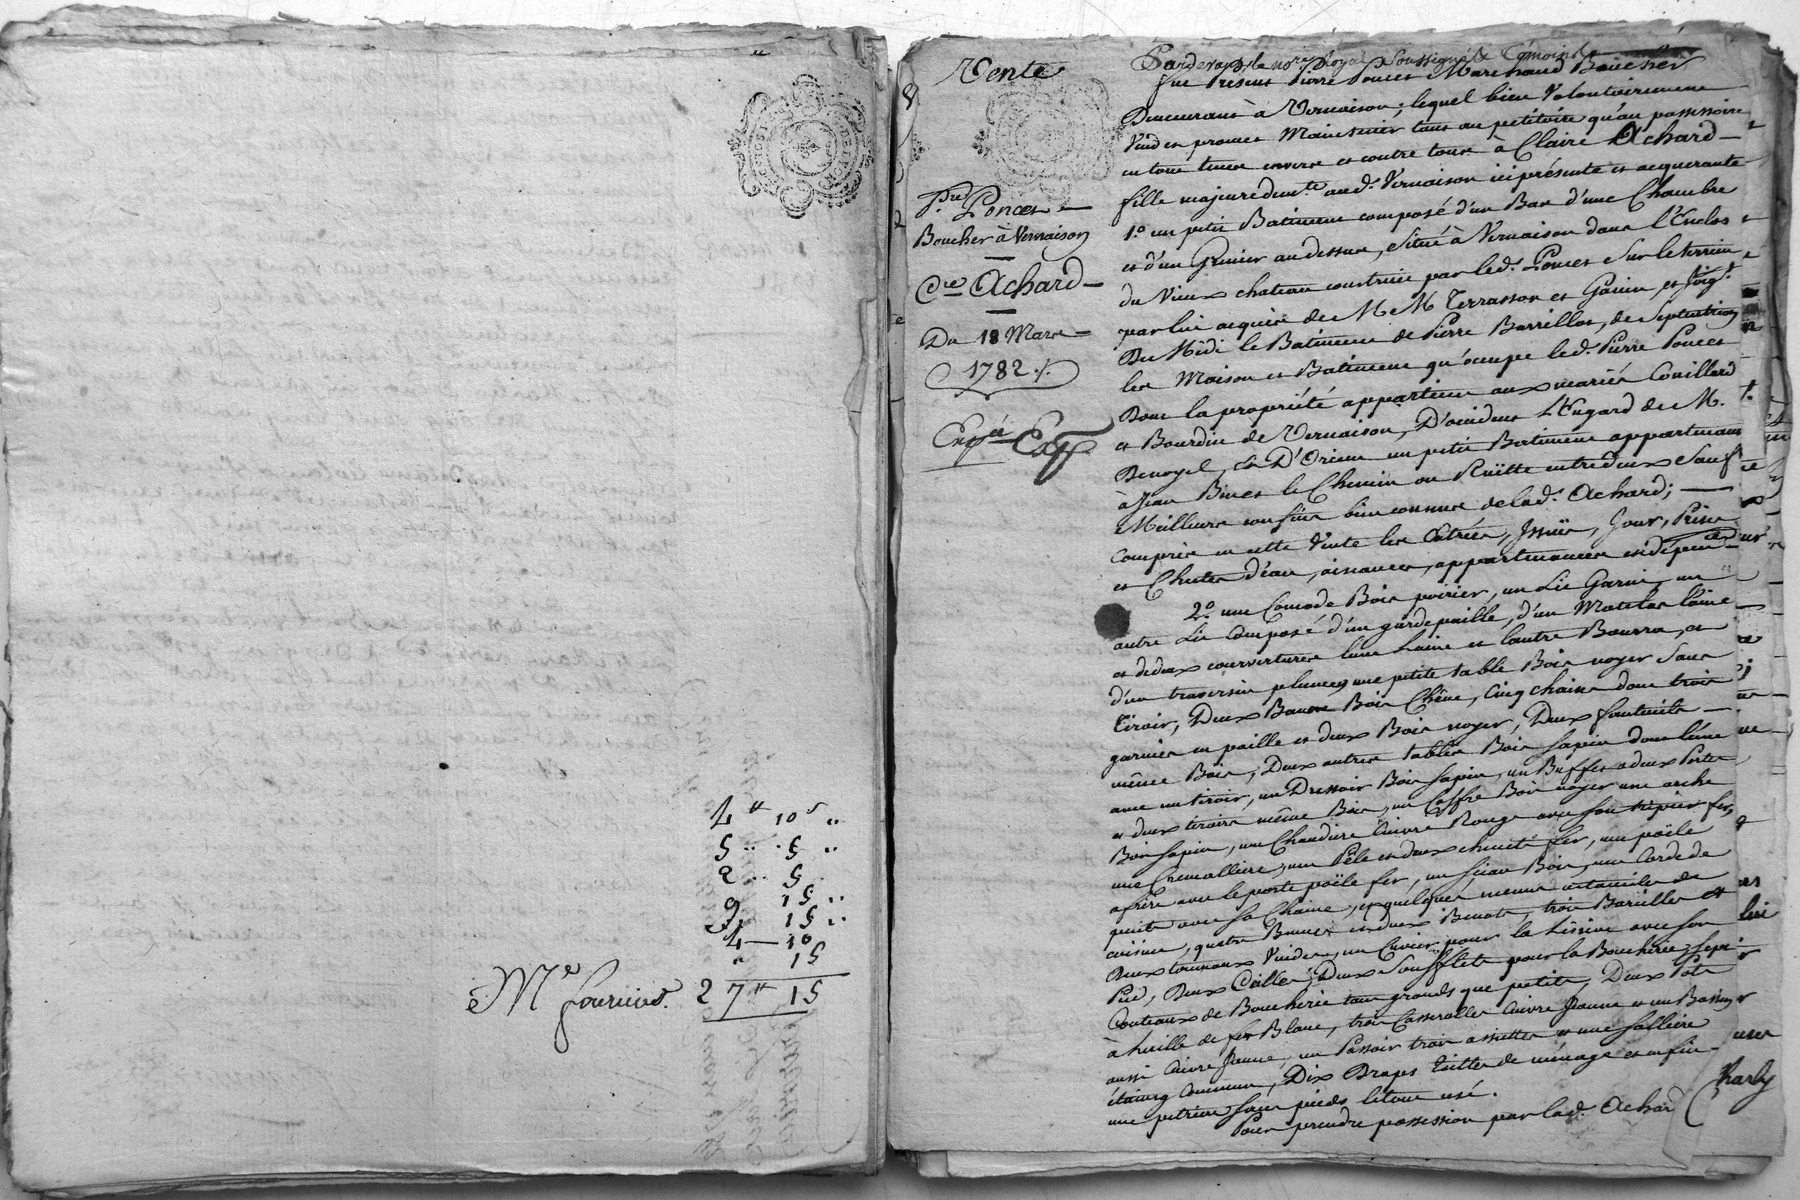 4ᵗᵗ 10ˢ ..
5 .. 5 ..
2 .. 5
9. 15 ..
9. 15 ..
4 — 10
" 15
27ᵗᵗ 15
Mᵉ fournier.
Vente
Pʳᵉ Poncet —
Boucher à Vernaison
—
Cʳᵉ Achard —
—
Du 18 Mars —
1782 ./.
Expᵉᵉ
Pardevant le noʳᵉ Royal Soussigné & témoins
fut Présent Pierre Poncet Marchand Boucher
Demeurant à Vernaison ; lequel bien Volontairement
Vend et promet Maintenir tant au petitoire qu'au possessoire
en tout tems envers et contre tous à Claire Achard —
fille majeure demᵗᵉ aud. Vernaison ici présente et acquerante
1.º un petit Batiment composé d'un Bas d'une Chambre
et d'un Grenier au dessus, Situé à Vernaison dans l'Enclos
du Vieux chateau construit par led. Poncet Sur le terrein
par lui acquis de M M Terrasson et Gonin, et Joigᵗ
Du Midi le Batiment de Pierre Barrillot, de Septentrion
les Maison et Batiment qu'occupe led. Pierre Poncet
Dont la propriété appartient aux mariés Couillerd
et Bourdin de Vernaison, D'occident L'Engard de M.
Denoyel, et D'Orient un petit Batiment appartenant
à Jean Binet le Chemin ou Ruëtte entredeux Sauf
Meilleurs confins bien connus de lad. Achard ; —
Compris en cette Vente les Entrées, Issuës, Jour, Prise
et Chutes d'eau, aisances, appartenances et dépend
2.º une Comode Bois poirier, un Lit Garni, un
autre Lit Composé d'un gardepaille, d'un Matelas laine
et de deux couvertures l'une Laine et l'autre Bourra, et
d'un traversin plumes, une petite table Bois noyer Sans
Tiroir, Deux Bancs Bois Chêne, Cinq chaises dont trois
garnies en paille et deux Bois noyer, Deux fauteuils —
même Bois, Deux autres tables Bois Sapin dont l'une
avec un tiroir, un Dressoir Bois Sapin, un Buffet a deux Portes
et deux tiroirs même Bois, un Coffre Bois noyer une arche
Bois Sapin, un Chaudiere Cuivre Rouge avec son trépier fer,
une Cremalliere, une Pêle et deux chenets fer, une poële
afrire avec le porte poële fer, un Sceau Bois, une Corde de
puits avec Sa Chaine, et quelques menus ustanciles de
cuisine, quatre Bennes et deux Benots, trois Barilles et
Deux tonneaux Vuides, un Cuvier pour la Lissive avec son
Pied, Deux Soufflets pour la Boucherie Sept
Couteaux de Boucherie tant grands que petits, Deux Pots
à huille de fer Blanc, trois Casserolles Cuivre Jaune et un Bassin
aussi Cuivre Jaune, un Passoir trois assiettes et une Salliere
étaing Commun, Dix Draps toille de ménage et enfin —
une petriere Sans pieds le tout usé.
Pour prendre possession par lad. Achard
Charly